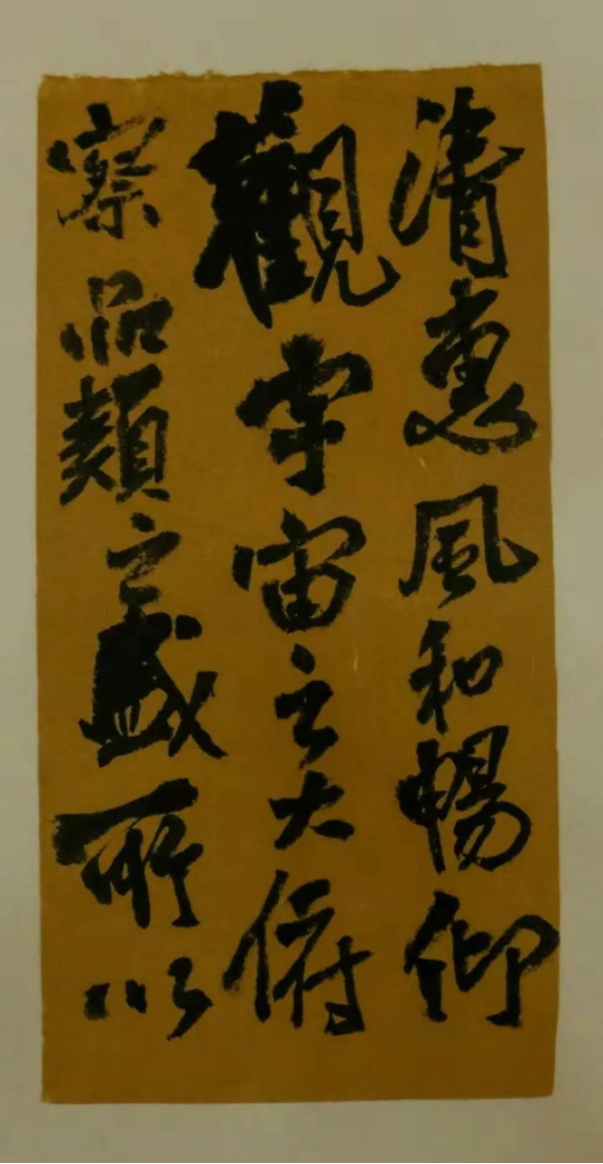 清惠風和暢仰
觀宇宙之大俯
察品類之盛所以